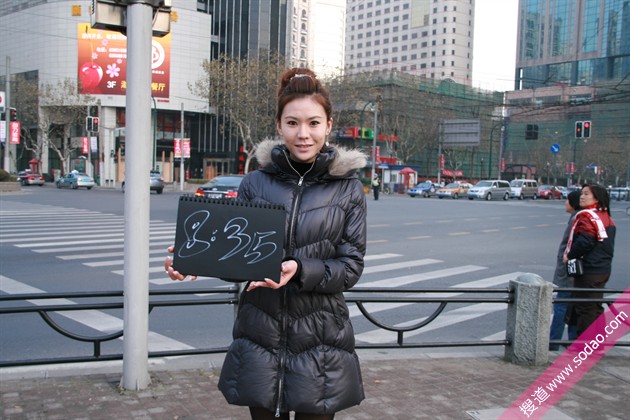 3F
餐厅
8:35
搜道 www.sodao.com